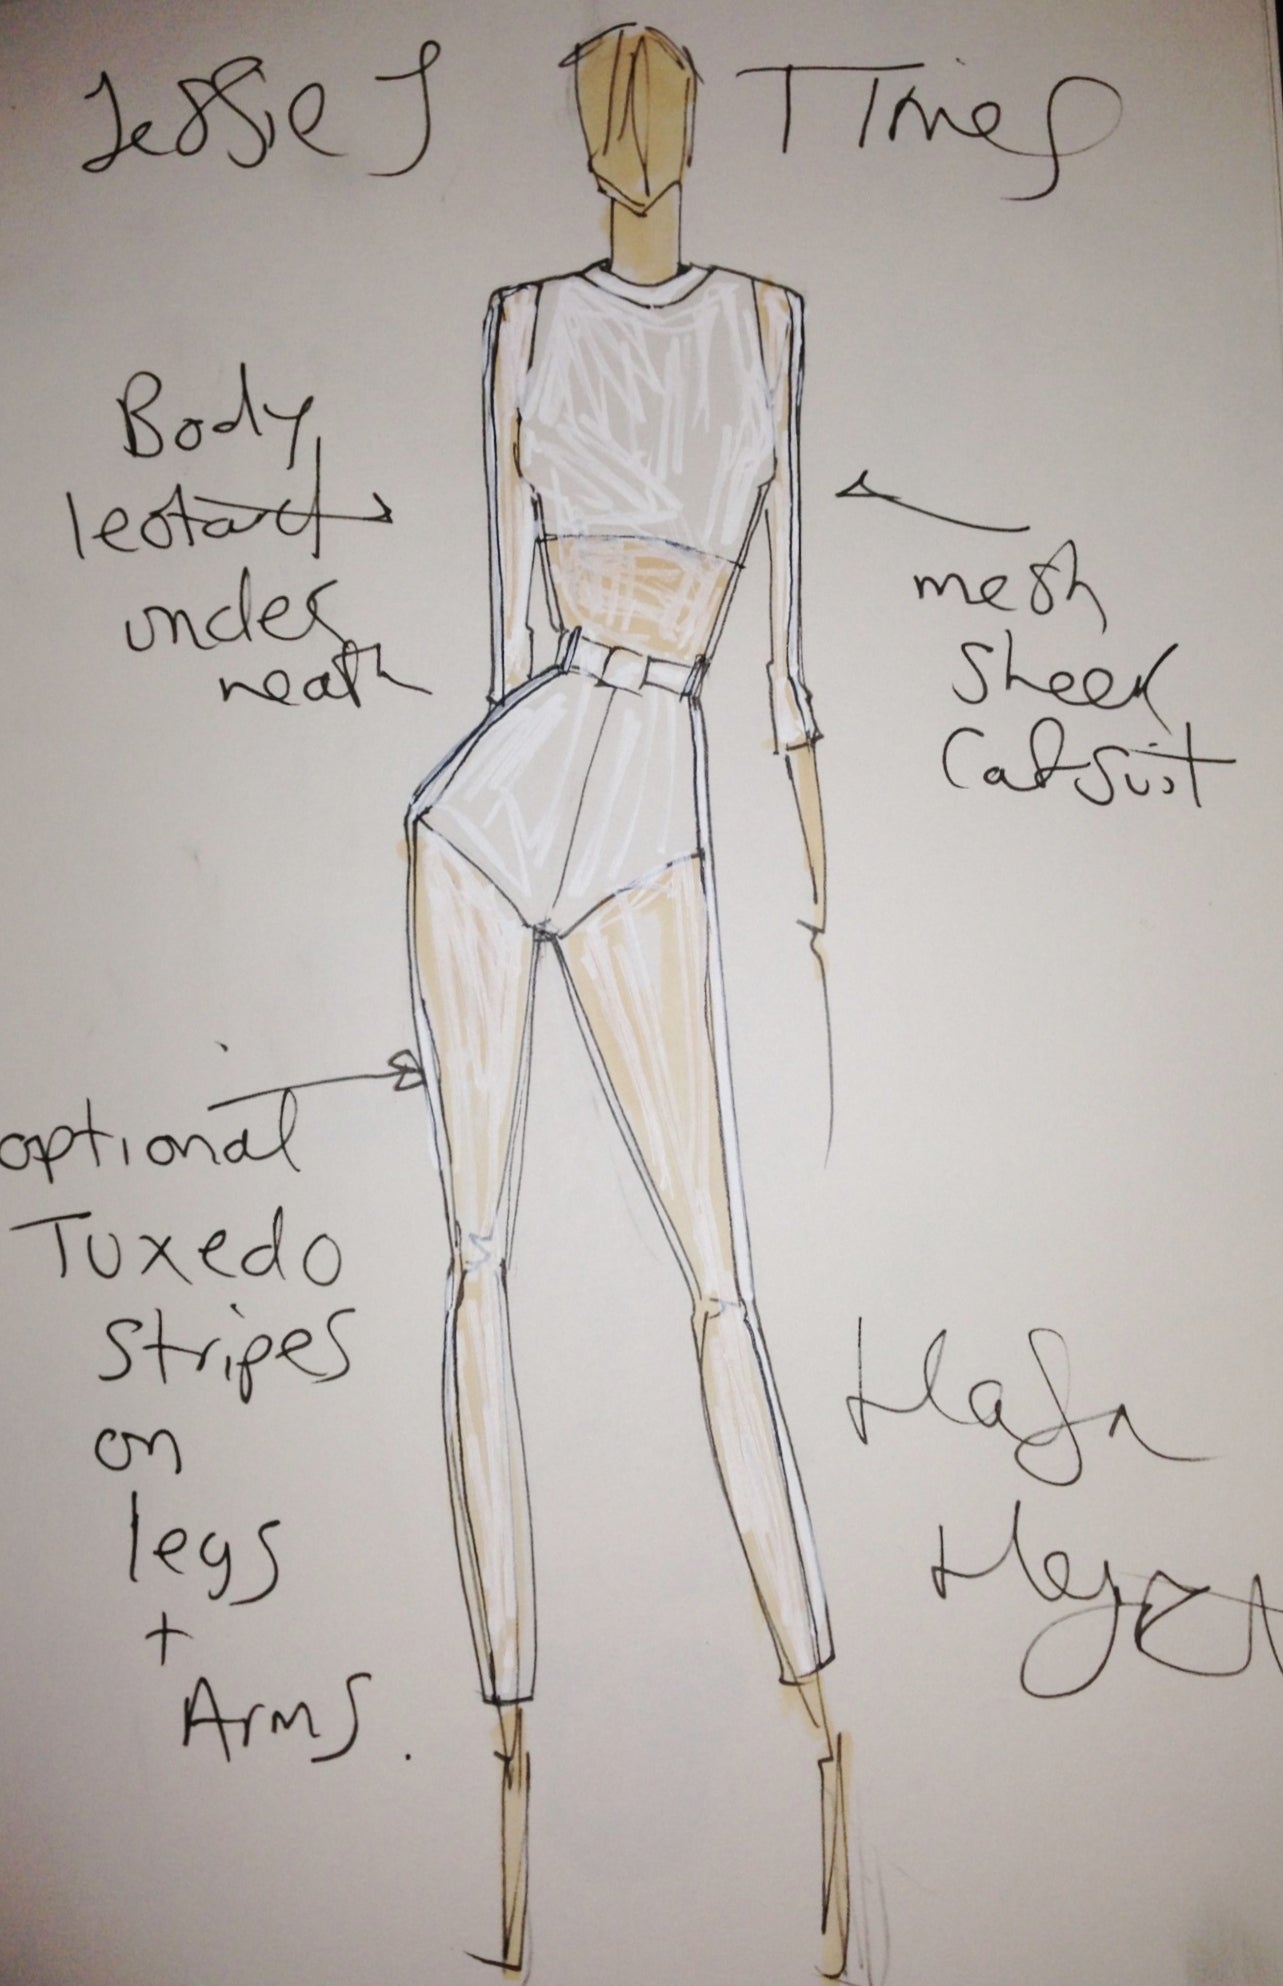 Jessie J Times
Body
leotard
under
neath
mesh
Sheer
Catsuit
optional
Tuxedo
Stripes
on
legs
+
Arms.